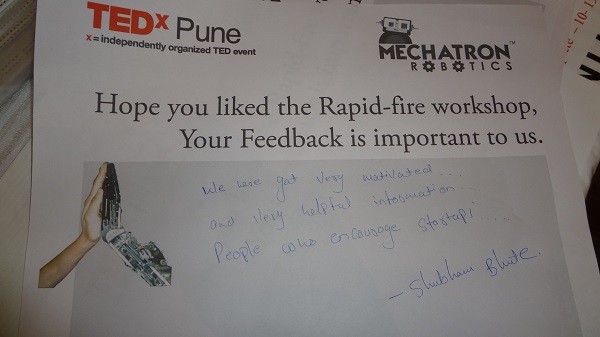 TEDx Pune
x = independently organized TED event
MECHATRON™
ROBOTICS
Hope you liked the Rapid-fire workshop,
Your Feedback is important to us.
We were got very motivated...
and very helpful information...
People who encourage
- Shubham Bhute